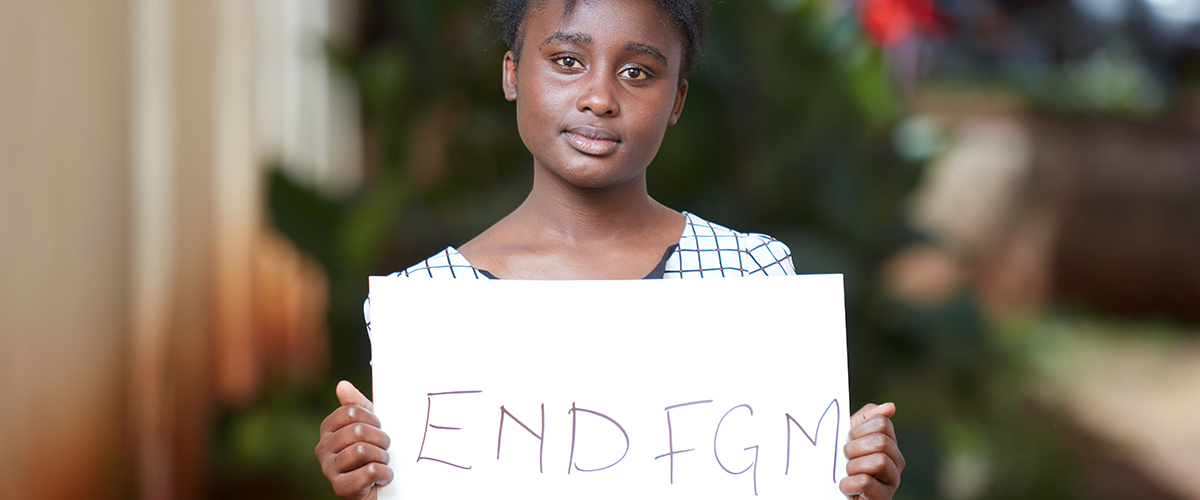 END FGM